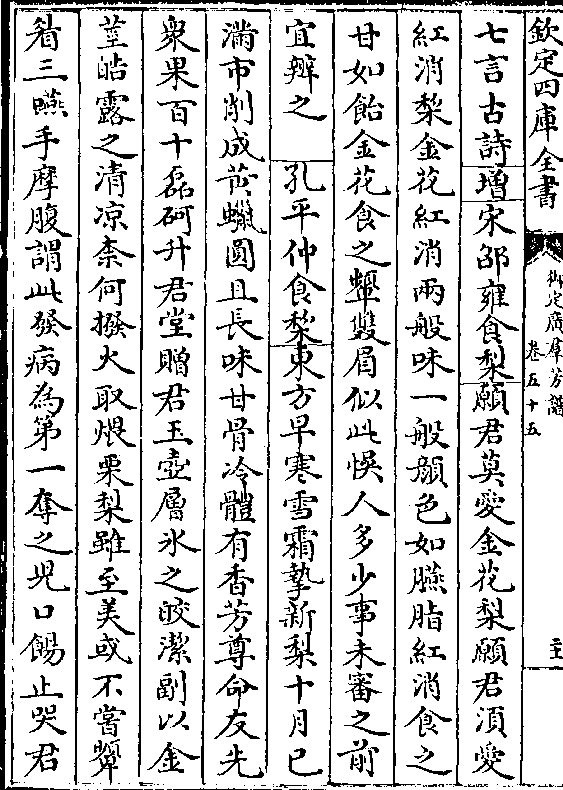 欽定四庫全書
御定廣群芳譜
卷五十五
七言古詩增宋邵雍食梨願君莫愛金花梨願君湏愛
紅消梨金花紅消兩般味一般顔色如臙脂紅消食之
甘如飴金花食之顰雙眉似此悞人多少事未審之前
宜辨之 孔平仲食梨東方早寒雪霜摯新梨十月已
滿市削成黄蠟圓且長味甘骨冷體有香芳尊命友先
衆果百十磊砢升君堂贈君玉壺層氷之皎潔副以金
莖皓露之清凉柰何撥火取煨栗梨雖至美或不嘗顰
㸔三嚥手摩腹謂此發病為第一奪之兒口餳止哭君